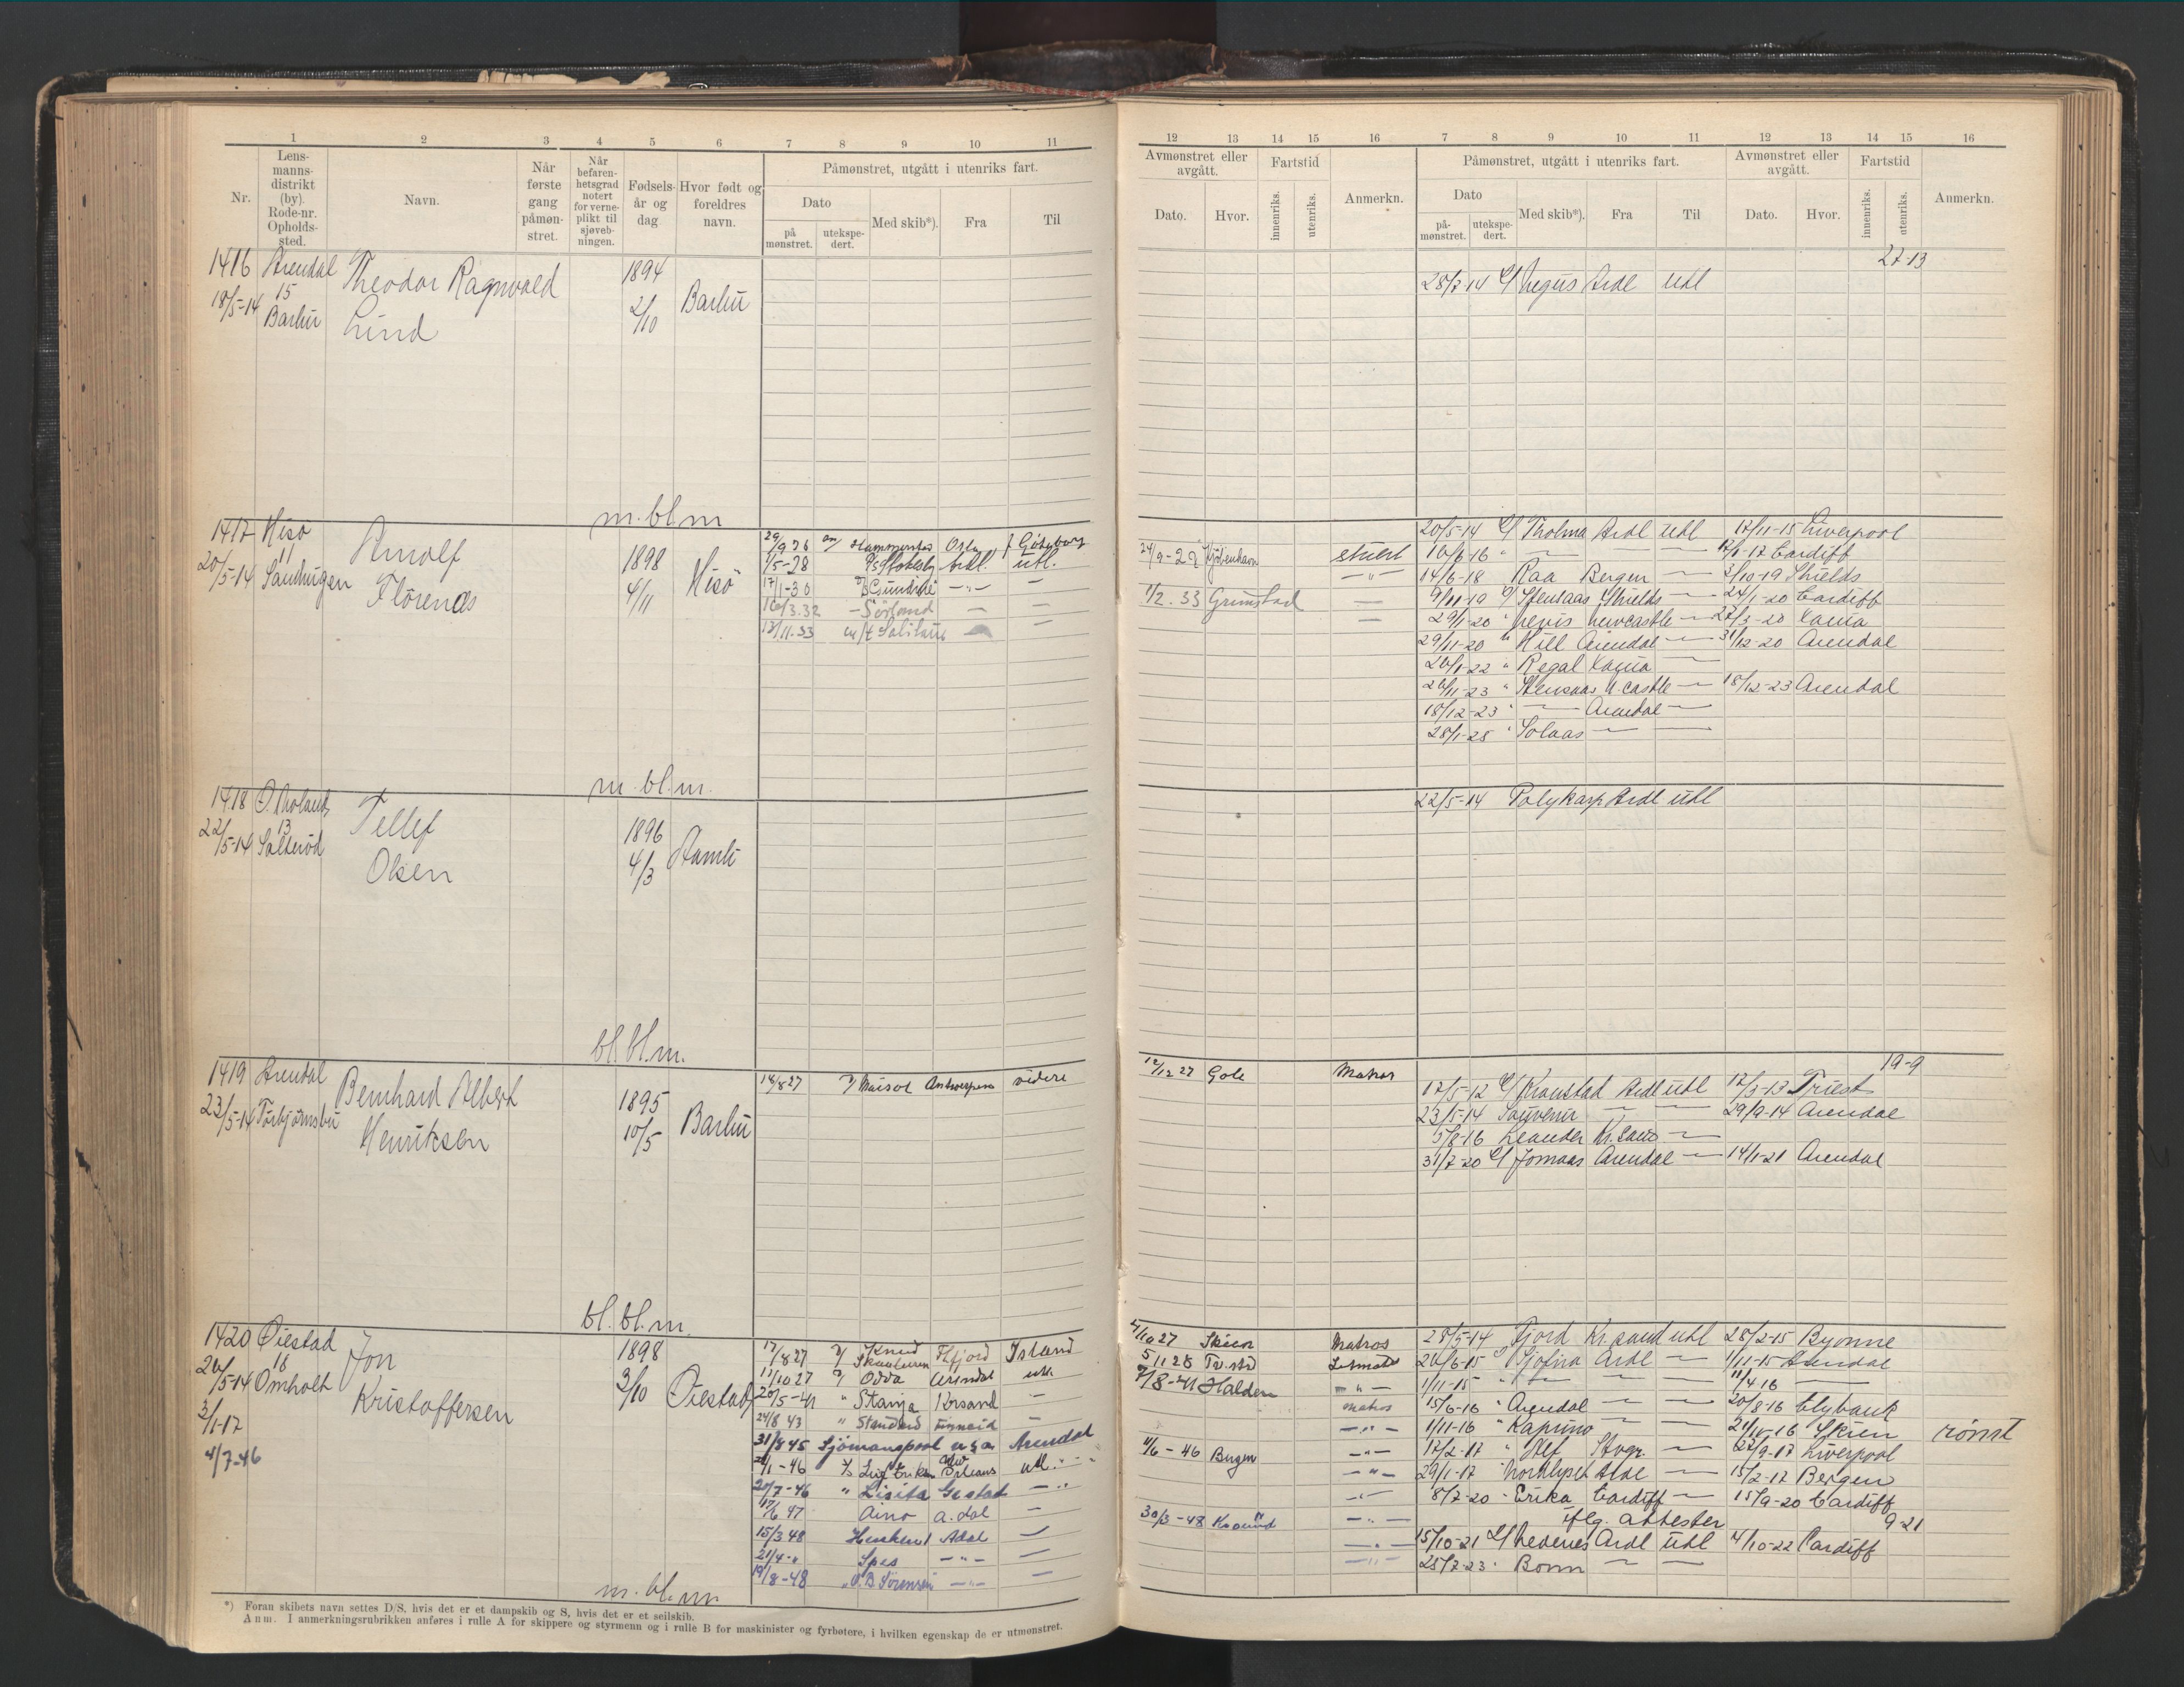 1 2 3 4 5 6 7 8 9 10 11
Nr.
Lens-
manns-
distrikt
(by).
Rode-nr.
Opholds-
sted.
Navn.
Når
første
gang
påmøn-
stret.
Når
befaren-
hetsgrad
notert
for verne-
plikt til
sjøveb-
ningen.
Fødsels-
år og
dag
Hvor født og
foreldres
navn.
Påmønstret, utgått i utenriks fart.
Dato
på
mønstret.
utekspe-
dert.
Med skib*).
Fra
Til
1416 Arendal Theodor Ragnvald 1894
18/5-14 15 Barbu
Barbu Lind 2/10
m. bl. m
1417 Hisö Arnolf 1898 Hisö
20/5-14 11
Sandvigen Flörenæs 4/11
29/9 26 Oslo f Göteborg
1/5-28 utl.
17/1-30 -"-
16/3.32 - Sörland — —
13/11.33 m/t
m. bl. m.
1418 Ö. Moland Tellef 1896
22/5-14 13
Salteröd Olsen 4/3
bl. bl. m.
1419 Arendal Bernhard Albert 1895 Barbu
23/5-14 Torbjørnsbu Henriksen 10/5
18/8 27 Antwerpen videre
bl. bl. m.
1420 Öiestad Jon 1898
26/5-14 18
Omholt Kristoffersen 3/10 Öiestad
3/1-17
4/7-46
17/8 27 Knud Skaaluren Island
11/10 27 Odda Arendal utl.
20/5-41 " Stanja Krsand —
24/8 43 " Standard —
31/8 45 Sjömanspool u s a Arendal
/1-46 Leif Eriksen New Orleans utl.
20/7-46 " Lisita
17/6 47 Aino A.dal —
15/3 48 Adal —
21/4-" Spes -"- —
19/8-48 "O.B. Sörensen -"- —
m. bl. m
*) Foran skibets navn settes D/S, hvis det er et dampskib og S, hvis det er et seilskib.
Anm. I anmerkningsrubrikken anføres i rulle A for skippere og styrmenn og i rulle B for maskinister og fyrbøtere, i hvilken egenskap de er utmønstret.
12 13 14 15 16 7 8 9 10 11 12 13 14 15 16
Avmønstret eller
avgått.
Dato.
Hvor.
Fartstid
innenriks.
utenriks.
Anmerkn.
Påmønstret, utgått i utenriks fart.
Dato
på-
mønstret.
utekspe-
dert.
Med skib*).
Fra
Til
Avmønstret eller
avgått.
Dato.
Hvor.
Fartstid
innenriks.
utenriks.
Anmerkn.
27-13
28/7-14 Negus Ardl utl
20/5-14 Tholma Ardl utl 17/11-15 Liverpool
24/9-29 Kjöbenhavn stuert 16/6-16 " — — /1-17 Cardiff
-"- 14/6-18 Raa Bergen — 3/10-19 Shields
1/2.33 Grimstad — 9/11-19 Stensaas Shields — 24/1-20 Cardiff
— 29/1-20 " Nevis Newcastle — 27/3-20
29/11-20 " Hill Arendal — 31/12-20 Arendal
26/1-22 " Regal —
26/11-23 " Stensaas N.castle — 18/12-23 Arendal
18/12-23 " — Arendal —
28/1-25 " Solaas — —
22/5-14 Polykarp Ardl utl
19-9
12/12 27 Gole Matros
17/5-12 Kronstad Ardl utl 17/3-13 Triest
23/5-14 Souvenir — — 29/9-14 Arendal
5/8-16 Leander Kr.sand —
31/7-20 Jomaas Arendal — 14/1-21 Arendal
4/10 27 Skien Matros 28/5-14 Fjord Kr.sand utl 28/2-15
5 11 28 Tv.strd Letmatr 26/6-15 Ardl — 1/11-15 Arendal
7/8-41 Halden -"- 1/11-15 " — 11/4 16 —
matros 15/6-16 " Arendal — 20/8-16 Clybank
-"- 1/11-16 " Kaprino — — 24/11-16 Skien rømt
4/6-46 Bergen -"- 17/2-17 " Alf Stvgr. — 22/9-17 Liverpool
-"- 29/1-17 Ardl — 15/2-17 Bergen
-"- 8/7-20 - Erika Cardiff — 15/9-20 Cardiff
30/3-48 -"- iflg. attester 9-21
-"- 15/10-21 Ledenes Ardl utl 4/10-22 Cardiff
-"- 25/7-23 " Bonn — —